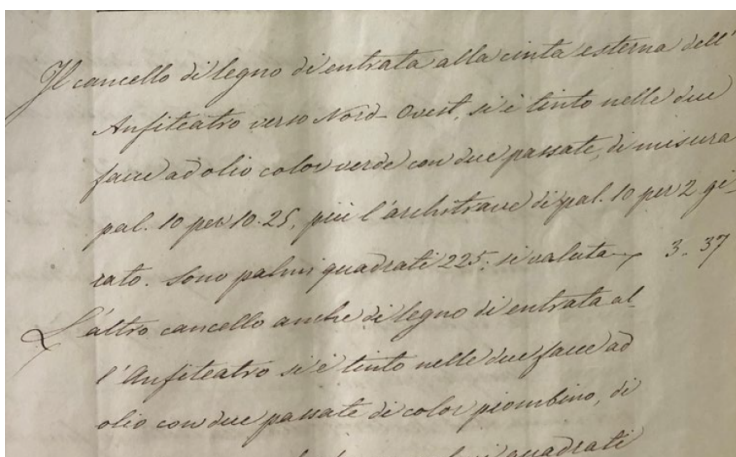 Il cancello di legno di entrata alla cinta esterna dell'
Anfiteatro verso Nord-Ovest, si è tinto nelle due
facce ad olio color verde con due passate, di misura
pal. 10 per 10.25, più l'architrave di pal. 10 per 2 gi-
rato. Sono palmi quadrati 225; si valuta 3. 37
L'altro cancello anche di legno di entrata al-
l'Anfiteatro si è tinto nelle due facce ad
olio con due passate di color piombino, di
quadrati